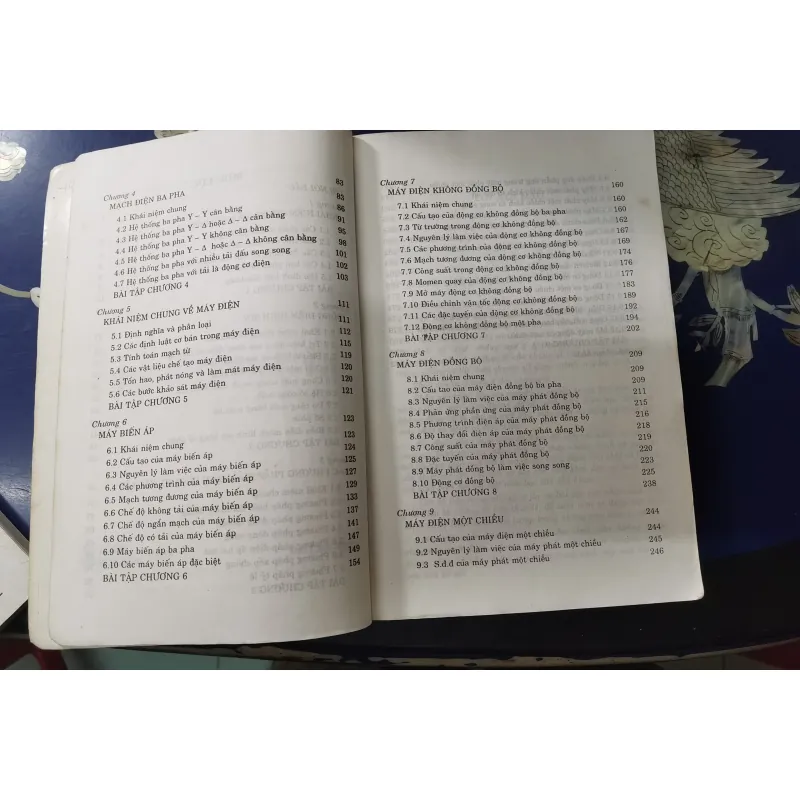 Chương 4
MẠCH ĐIỆN BA PHA 83
4.1 Khái niệm chung 83
4.2 Hệ thống ba pha Y – Y cân bằng 86
4.3 Hệ thống ba pha Y – Δ hoặc Δ – Δ cân bằng 91
4.4 Hệ thống ba pha Y – Y không cân bằng 95
4.5 Hệ thống ba pha Y – Δ hoặc Δ – Δ không cân bằng 98
4.6 Hệ thống ba pha với nhiều tải đấu song song 101
4.7 Hệ thống ba pha với tải là động cơ điện 102
BÀI TẬP CHƯƠNG 4 103
Chương 5
KHÁI NIỆM CHUNG VỀ MÁY ĐIỆN 111
5.1 Định nghĩa và phân loại 111
5.2 Các định luật cơ bản trong máy điện 112
5.3 Tính toán mạch từ 115
5.4 Các vật liệu chế tạo máy điện 119
5.5 Tổn hao, phát nóng và làm mát máy điện 120
5.6 Các bước khảo sát máy điện 120
BÀI TẬP CHƯƠNG 5 121
Chương 6
MÁY BIẾN ÁP 123
6.1 Khái niệm chung 123
6.2 Cấu tạo của máy biến áp 124
6.3 Nguyên lý làm việc của máy biến áp 125
6.4 Các phương trình của máy biến áp 127
6.5 Mạch tương đương của máy biến áp 129
6.6 Chế độ không tải của máy biến áp 133
6.7 Chế độ ngắn mạch của máy biến áp 137
6.8 Chế độ có tải của máy biến áp 141
6.9 Máy biến áp ba pha 147
6.10 Các máy biến áp đặc biệt 149
BÀI TẬP CHƯƠNG 6 154
Chương 7
MÁY ĐIỆN KHÔNG ĐỒNG BỘ 160
7.1 Khái niệm chung 160
7.2 Cấu tạo của động cơ không đồng bộ ba pha 160
7.3 Từ trường trong động cơ không đồng bộ 162
7.4 Nguyên lý làm việc của động cơ không đồng bộ 167
7.5 Các phương trình của động cơ không đồng bộ 169
7.6 Mạch tương đương của động cơ không đồng bộ 174
7.7 Công suất trong động cơ không đồng bộ 176
7.8 Momen quay của động cơ không đồng bộ 177
7.9 Mở máy động cơ không đồng bộ 183
7.10 Điều chỉnh vận tốc động cơ không đồng bộ 189
7.11 Các đặc tuyến của động cơ không đồng bộ 192
7.12 Động cơ không đồng bộ một pha 194
BÀI TẬP CHƯƠNG 7 202
Chương 8
MÁY ĐIỆN ĐỒNG BỘ 209
8.1 Khái niệm chung 209
8.2 Cấu tạo của máy điện đồng bộ ba pha 209
8.3 Nguyên lý làm việc của máy phát đồng bộ 211
8.4 Phản ứng phần ứng của máy phát đồng bộ 215
8.5 Phương trình điện áp của máy phát đồng bộ 216
8.6 Độ thay đổi điện áp của máy phát đồng bộ 218
8.7 Công suất của máy phát đồng bộ 219
8.8 Đặc tuyến của máy phát đồng bộ 220
8.9 Máy phát đồng bộ làm việc song song 223
8.10 Động cơ đồng bộ 225
BÀI TẬP CHƯƠNG 8 238
Chương 9
MÁY ĐIỆN MỘT CHIỀU 244
9.1 Cấu tạo của máy điện một chiều 244
9.2 Nguyên lý làm việc của máy phát một chiều 245
9.3 S.đ.đ của máy phát một chiều 246